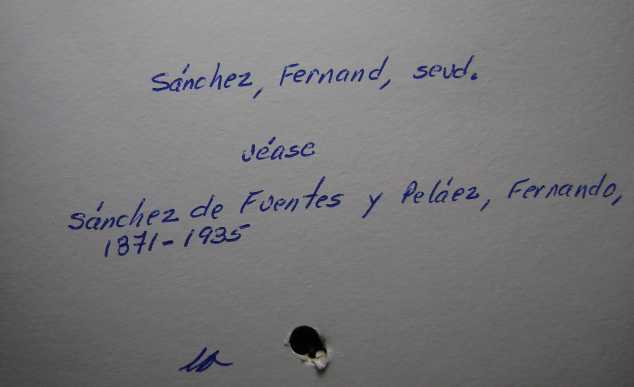 Sánchez, Fernand, seud.
véase
Sánchez de Fuentes y Peláez, Fernando,
1871-1935